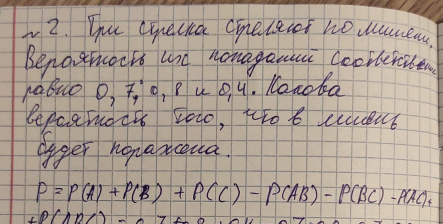 №2. Три стрелка стреляют по мишени.
Вероятность их попаданий соответствен
равно 0,7; 0,8 и 0,4. Какова
вероятность того, что в мишень
будет поражена.
P = P(A) + P(B) + P(C) - P(AB) - P(BC) - P(AC) +
+P(ABC) = 0,7 + 0,8